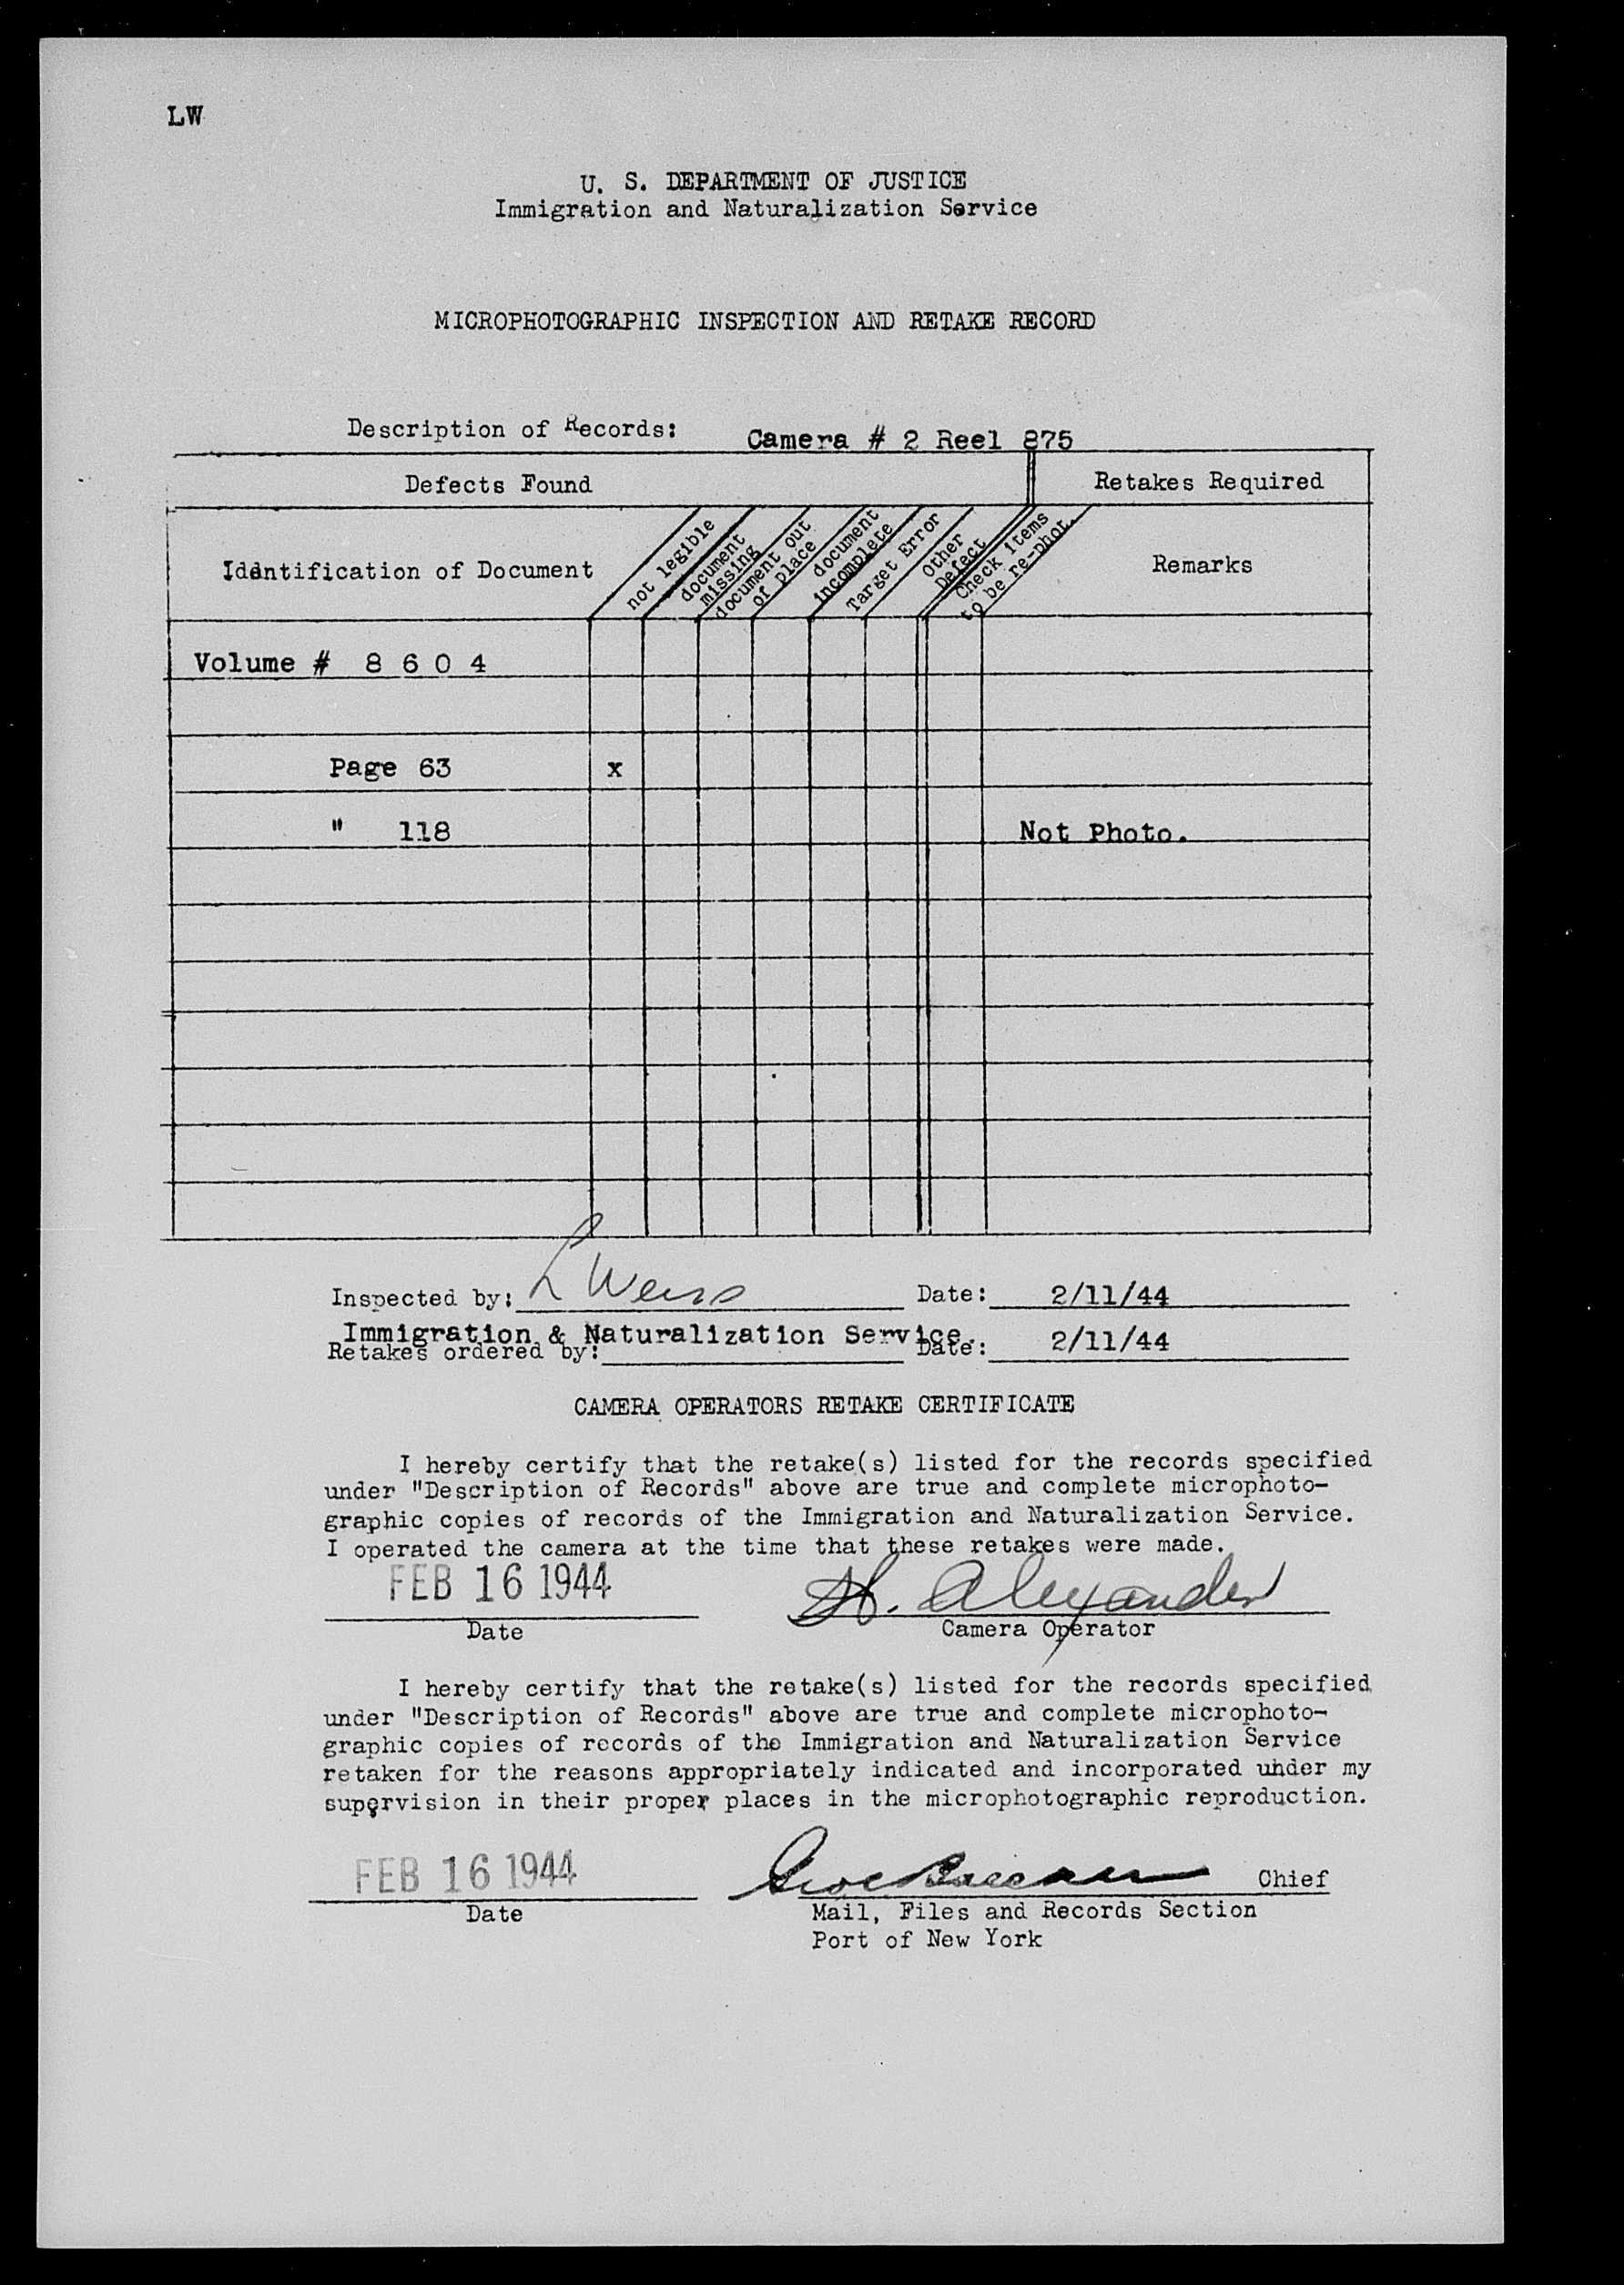 LW
U. S. DEPARTMENT OF JUSTICE
Immigration and Naturalization Service
MICROPHOTOGRAPHIC INSPECTION AND RETAKE RECORD
Description of Records: Camera # 2 Reel 875
Defects Found Retakes Required
Identification of Document
not legible
document
missing
document out
of place
document
incomplete
Target Error
Other
Defect
Check items
to be re-phot.
Remarks
Volume # 8 6 0 4
Page 63 x
" 118 Not Photo.
Inspected by: L Weiss Date: 2/11/44
Immigration & Naturalization Service.
Retakes ordered by: Date: 2/11/44
CAMERA OPERATORS RETAKE CERTIFICATE
I hereby certify that the retake(s) listed for the records specified
under "Description of Records" above are true and complete microphoto-
graphic copies of records of the Immigration and Naturalization Service.
I operated the camera at the time that these retakes were made.
FEB 16 1944 H. Alexander
Date Camera Operator
I hereby certify that the retake(s) listed for the records specified
under "Description of Records" above are true and complete microphoto-
graphic copies of records of the Immigration and Naturalization Service
retaken for the reasons appropriately indicated and incorporated under my
supervision in their proper places in the microphotographic reproduction.
FEB 16 1944 Chief
Date Mail, Files and Records Section
Port of New York